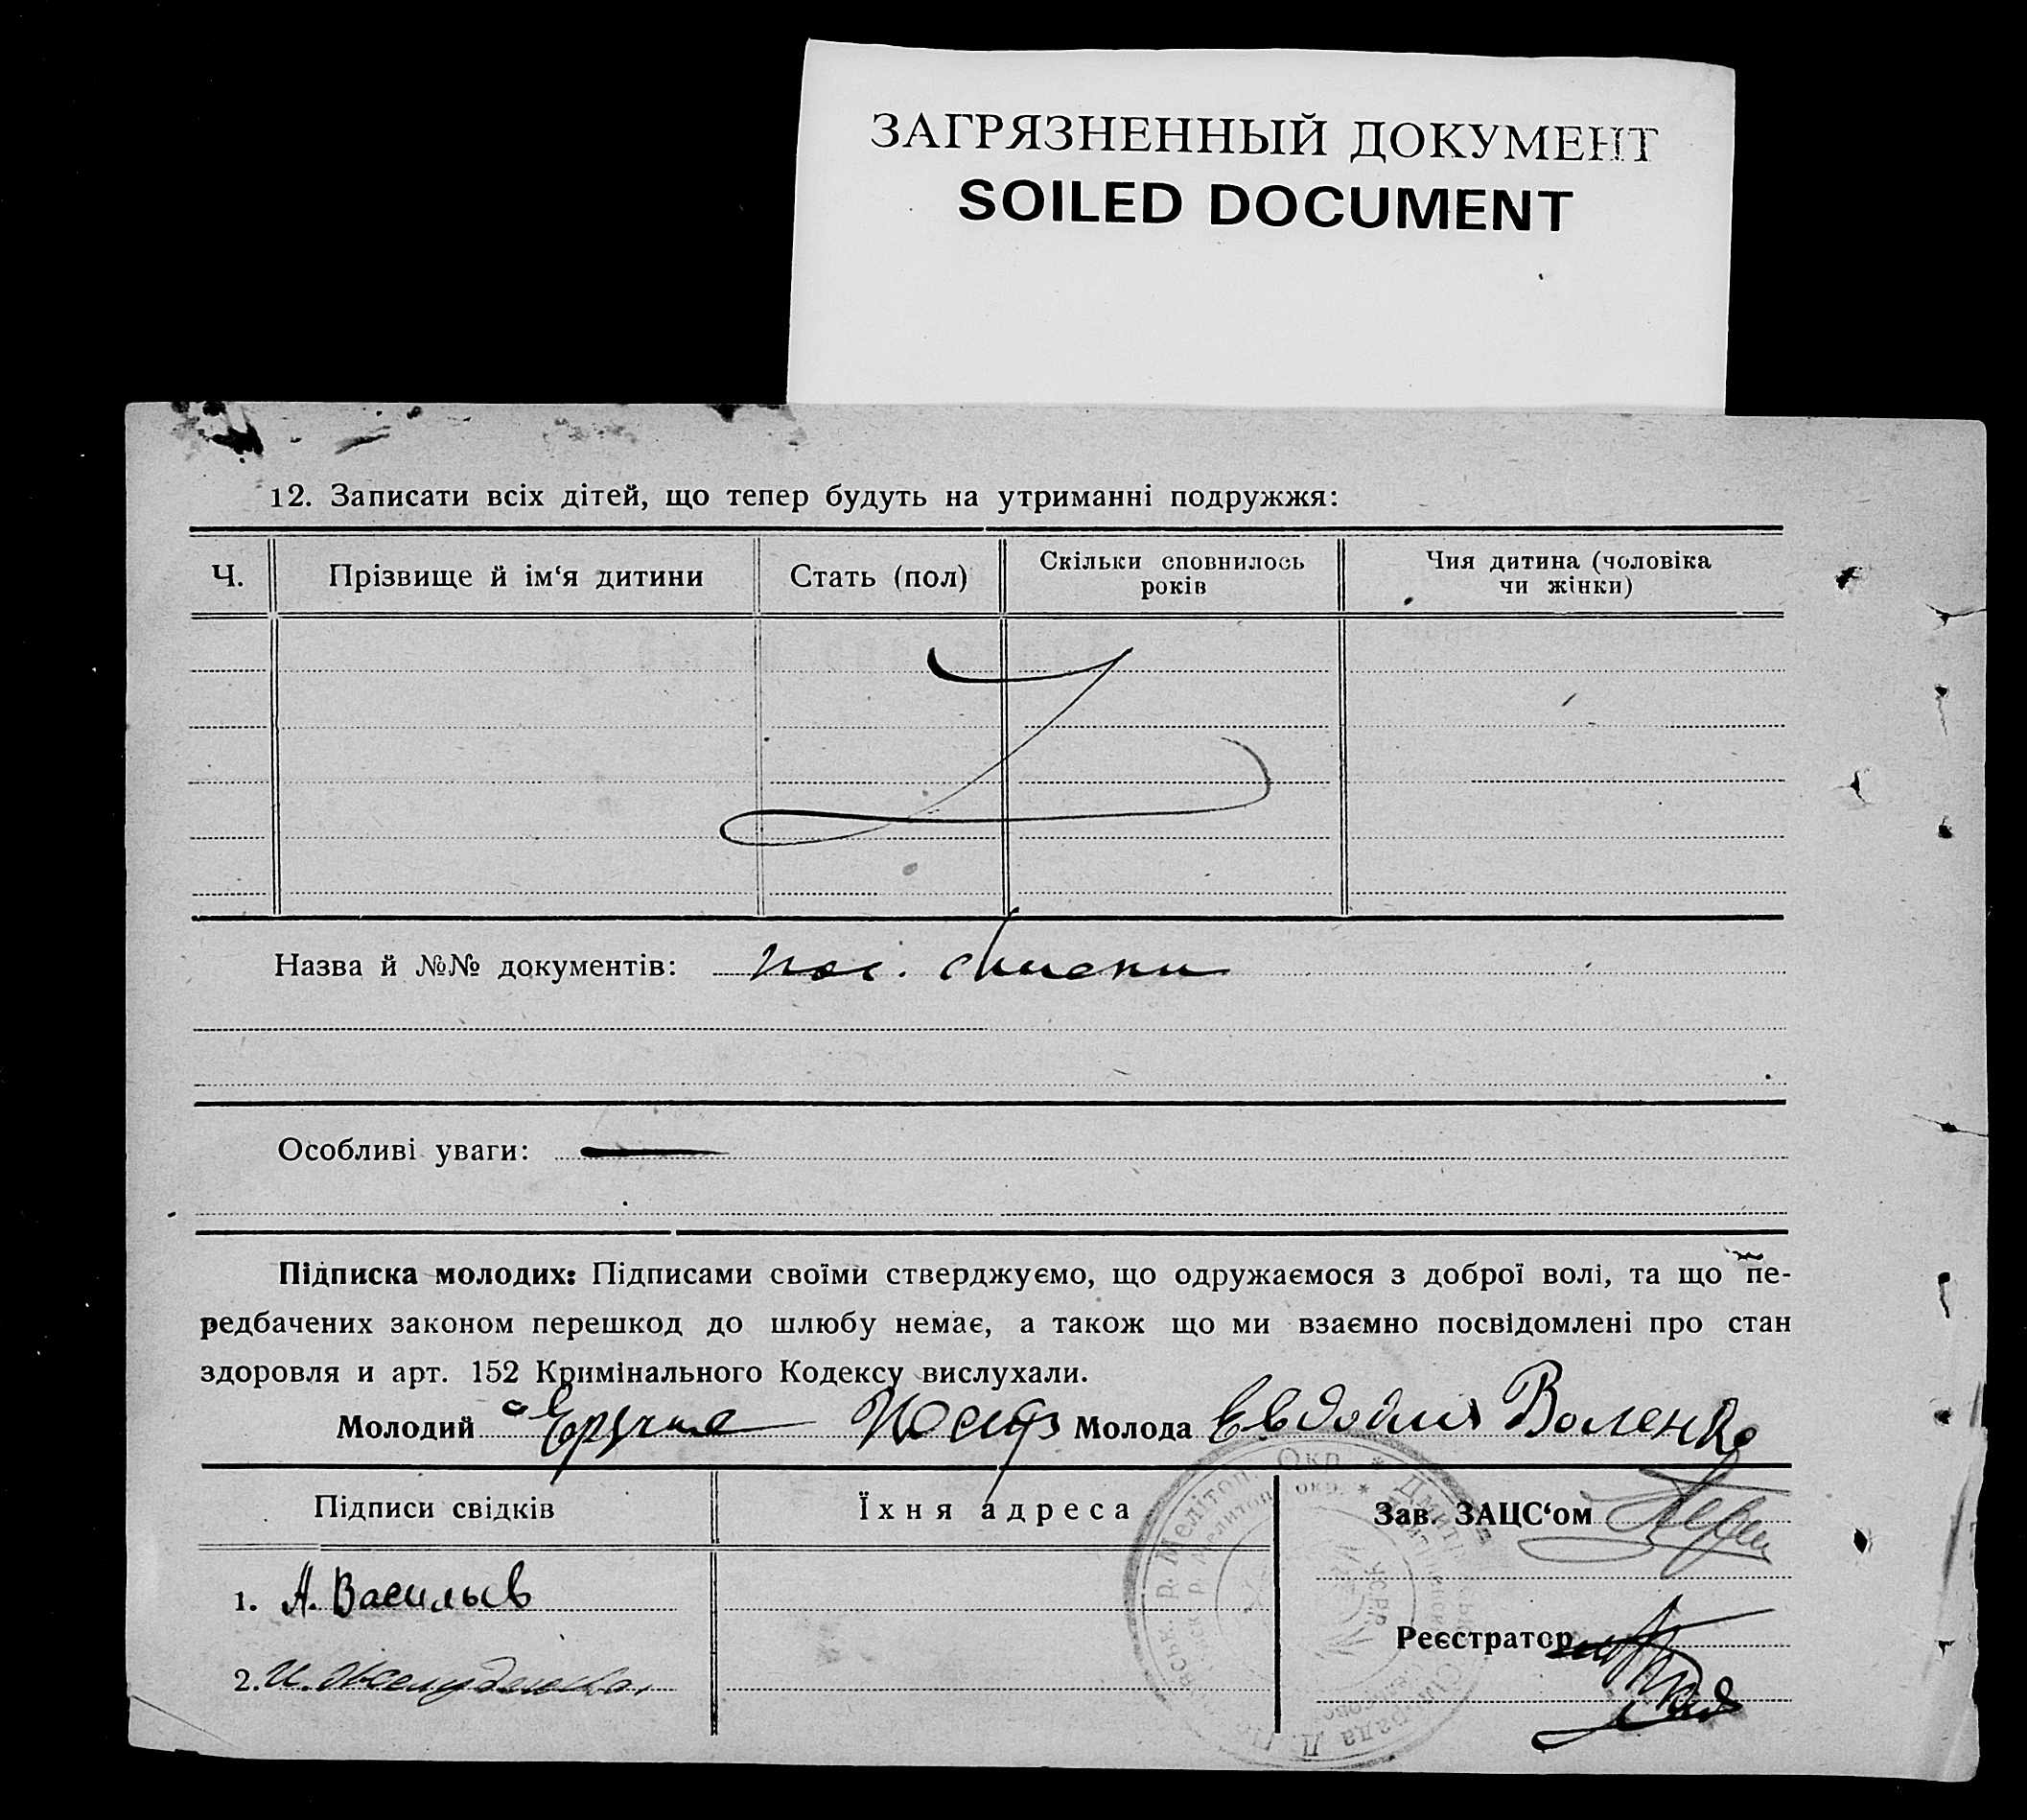 ЗАГРЯЗНЕННЫЙ ДОКУМЕНТ
SOILED DOCUMENT
12. Записати всіх дітей, що тепер будуть на утриманні подружжя:
Ч.
Прізвище й ім‘я дитини
Стать (пол)
Скільки сповнилось
років
Чия дитина (чоловіка
чи жінки)
Назва й №№ документів: пос. списки
Особливі уваги: —
Підписка молодих: Підписами своїми стверджуємо, що одружаємося з доброї волі, та що пе-
редбачених законом перешкод до шлюбу немає, а також що ми взаємно посвідомлені про стан
здоровля и арт. 152 Кримінального Кодексу вислухали.
Молодий Молода Евдокия Воленко
Підписи свідків
Їхня адреса
Зав. ЗАЦС‘ом
1. А. Васильев
Реєстратор
2. И.
Мелітоп. Окр. * Дмитр
УСРР